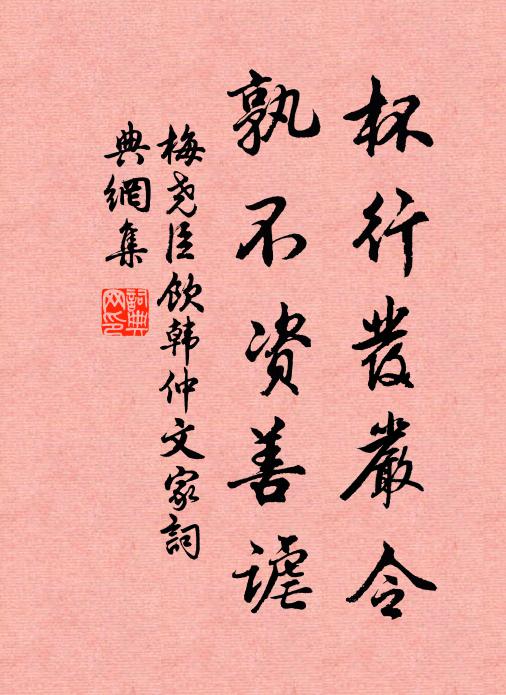 杯行發嚴令
孰不资善謔
梅尧臣飲韩仲文家詞
典網集
詞典
网印